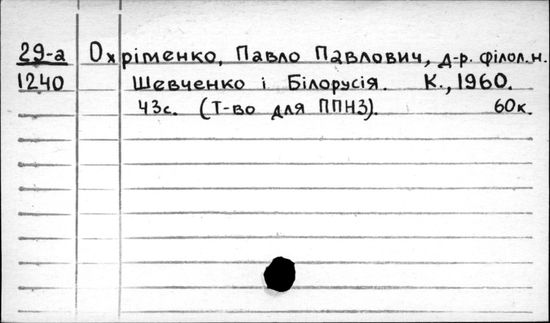 29-а Охріменко, Павло Павлович, д-р. філол. н.
1240 Шевченко і Білорусія. К., 1960.
43с. (Т-во для ППНЗ). 60к.